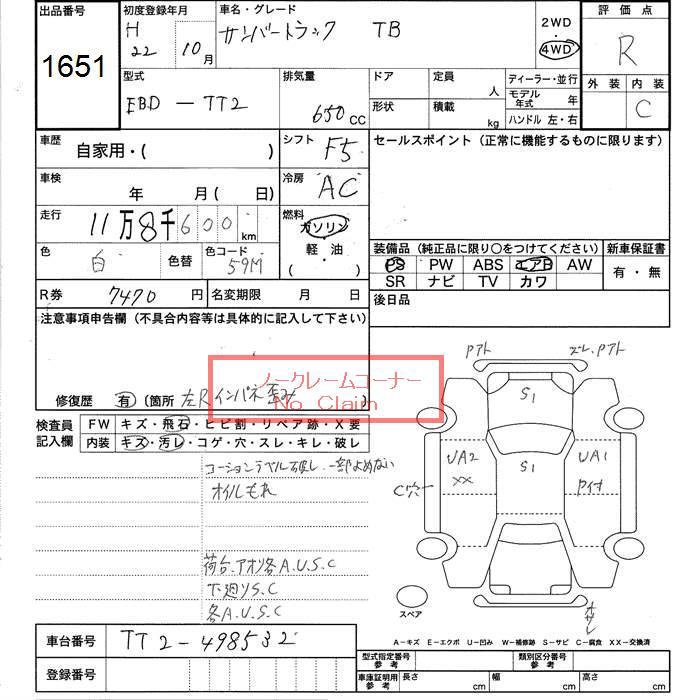 出品番号 初度登録年月 車名・グレード 2WD 評価点
1651 H 22 10月 サンバートラック TB 4WD R
型式 排気量 ドア 定員 人 ディーラー・並行 外装 内装
EBD－TT2 650cc 形状 積載 kg モデル年式 年 C
ハンドル 左・右
車歴 自家用・( ) シフト F5 セールスポイント（正常に機能するものに限ります）
車検 年 月(日) 冷房 AC
走行 11万8千600km 燃料 ガソリン
色 白 色替 色コード 59M 軽・油
( ・ )
装備品（純正品に限り〇をつけてください） 新車保証書
PS PW ABS エアB AW 有・無
SR ナビ TV カワ
R券 7470円 名変期限 月 日 後日品
注意事項申告欄（不具合内容等は具体的に記入して下さい）
ノークレームコーナー
No Claim
修復歴 有（箇所 左Rインパネ歪み
検査員記入欄 FW キズ・飛石・ヒビ割・リペア跡・X要
内装 キズ・汚レ・コゲ・穴・スレ・キレ・破レ
コーションラベル破レ、一部よめない
オイルもれ
荷台、アオリ各A.U.S.C
下廻りS.C
各A.U.S.C
Pアト ズレ、Pアト
S1
UA2 XX S1 UA1 P付
C穴
スペア
A－キズ E－エクボ U－凹み W－補修跡 S－サビ C－腐食 XX－交換済
車台番号 TT2-498532
登録番号
型式指定番号 参考 類別区分番号 参考
車庫証明用 参考 長さ cm 幅 cm 高さ cm